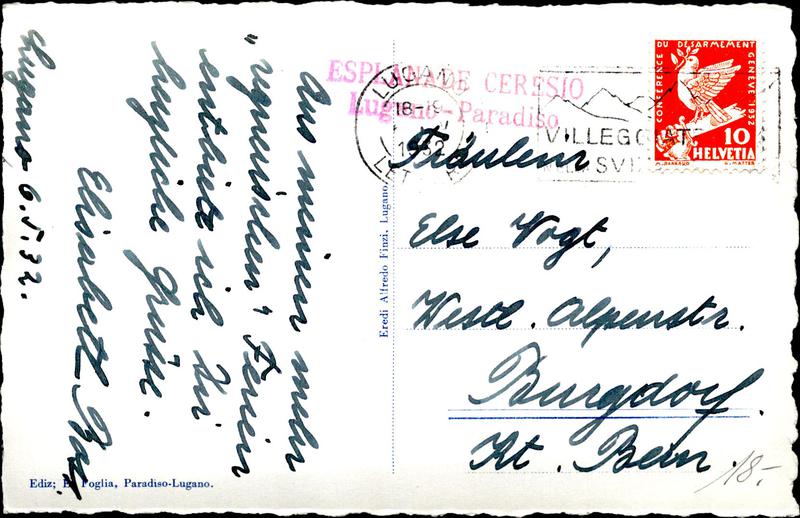 Lugano 6.5.32.
Aus meinen mehr
"regnerischen" Ferien
entbiete ich Dir
herzliche Grüsse.
Elisabeth
Ediz; E. Foglia, Paradiso-Lugano.
Eredi Alfredo Finzi, Lugano.
ESPLANADE CERESIO
Lugano-Paradiso
LUGANO
18-19
1932
VILLEGGIATE
SVIZ
CONFERENCE DU DESARMEMENT GENEVE 1932
10
HELVETIA
Fräulein
Else Vogt,
Westl. Alpenstr.
Burgdorf.
Kt. Bern.
18.-